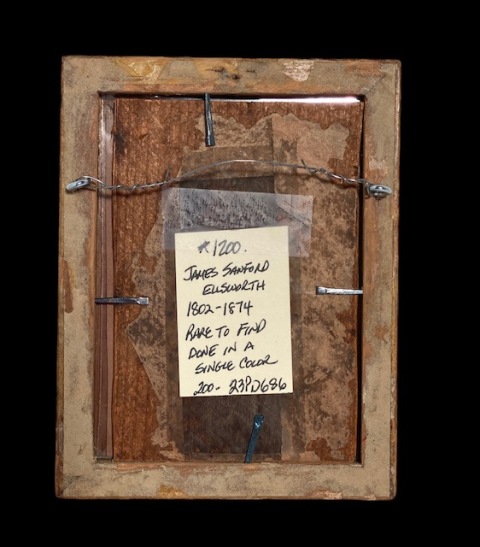 *1200.
JAMES SANFORD
ELLSWORTH
1802-1874
RARE TO FIND
DONE IN A
SINGLE COLOR
200- 23PD686